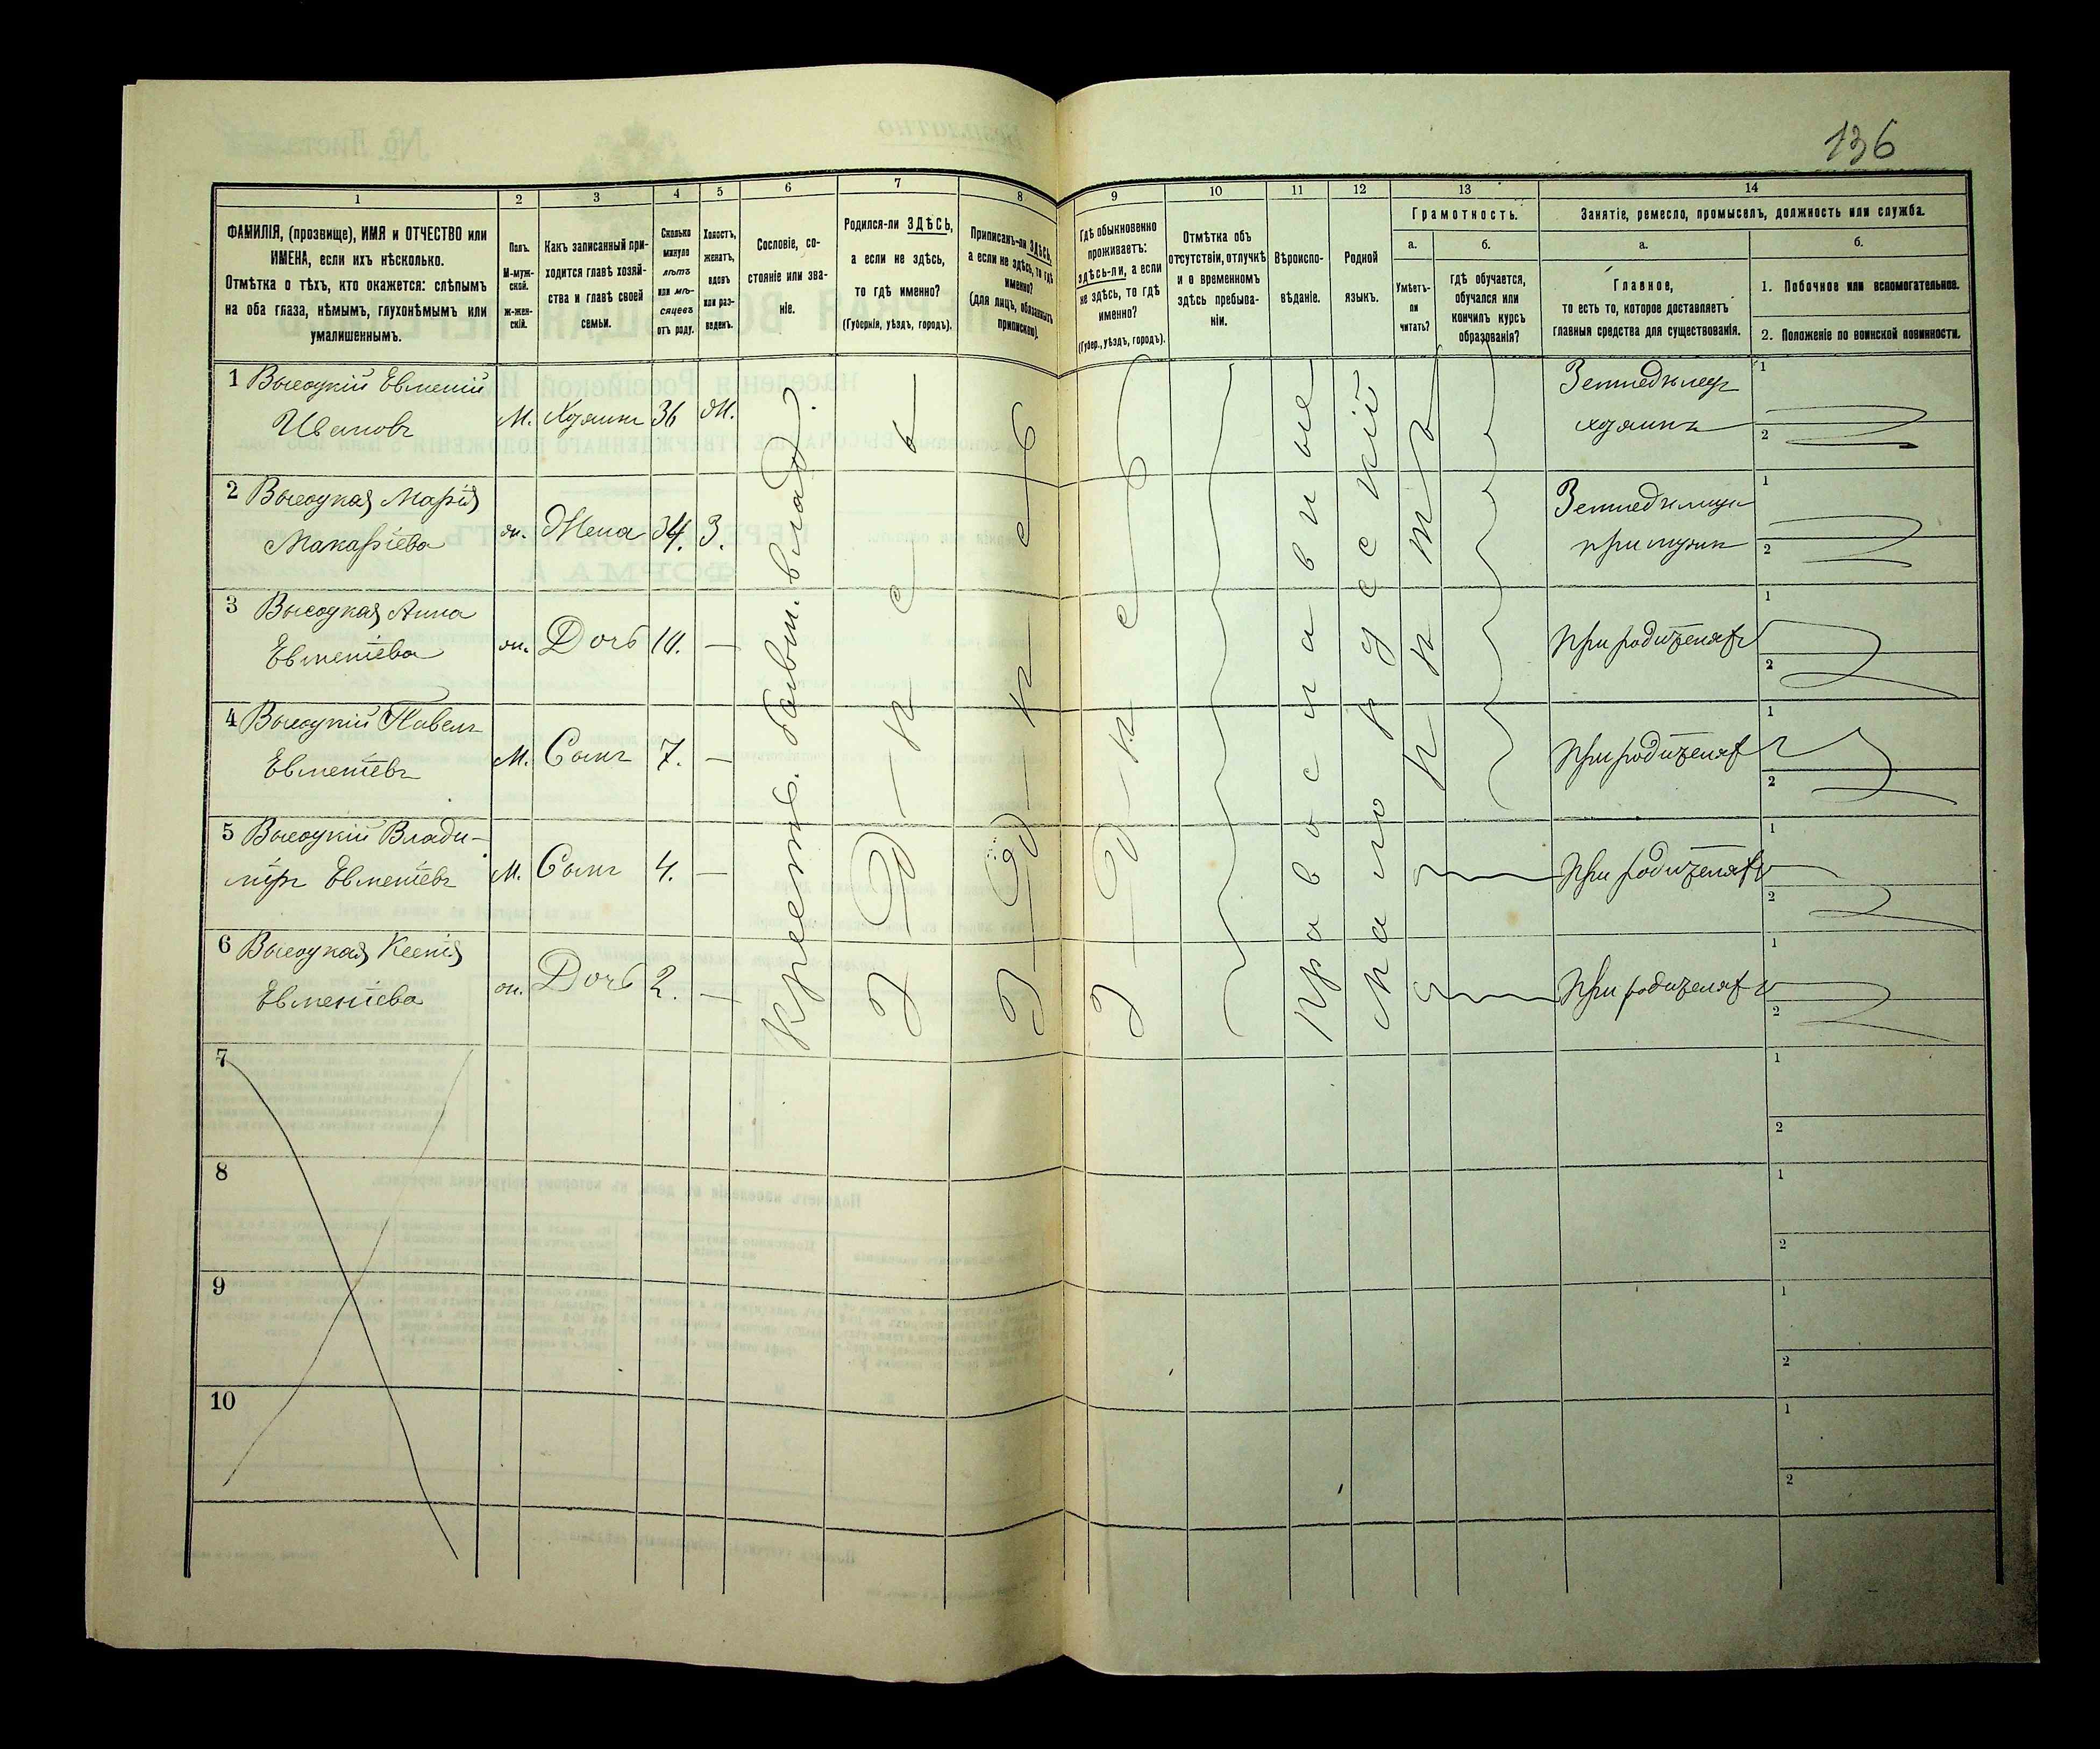 136
1
2
3
4
5
6
7
8
9
10
11
12
13
14
ФАМИЛІЯ, (прозвище), ИМЯ и ОТЧЕСТВО или
ИМЕНА, если ихъ нѣсколько.
Отмѣтка о тѣхъ, кто окажется: слѣпымъ
на оба глаза, нѣмымъ, глухонѣмымъ или
умалишеннымъ.
Полъ.
М-муж-
ской.
ж-жен-
скій.
Какъ записанный при-
ходится главѣ хозяй-
ства и главѣ своей
семьи.
Сколько
минуло
лѣтъ
или мѣ-
сяцевъ
отъ роду.
Холостъ,
женатъ,
вдовъ
или раз-
веденъ.
Сословіе, со-
стояніе или зва-
ніе.
Родился-ли ЗДѢСЬ,
а если не здѣсь,
то гдѣ именно?
(Губернія, уѣздъ, городъ).
Приписанъ-ли ЗДѢСЬ,
а если не здѣсь, то гдѣ
именно?
(для лицъ, обязанныхъ
припискою).
Гдѣ обыкновенно
проживаетъ:
здѣсь-ли, а если
не здѣсь, то гдѣ
именно?
(Губер., уѣздъ, городъ).
Отмѣтка объ
отсутствіи, отлучкѣ
и о временномъ
здѣсь пребыва-
ніи.
Вѣроиспо-
вѣданіе.
Родной
языкъ.
Грамотность.
а.
Умѣетъ-
ли
читать?
б.
гдѣ обучается,
обучался или
кончилъ курсъ
образованія?
Занятіе, ремесло, промыселъ, должность или служба.
а.
Главное,
то есть то, которое доставляетъ
главныя средства для существованія.
б.
1. Побочное или вспомогательное.
2. Положеніе по воинской повинности.
1 Высоцкій Евменій
Ивановъ
М. Хозяинъ 36 Ж.
Земледѣлецъ
хозяинъ
1
2
2 Высоцкая Марія
Макаріева
ж. Жена 34. З.
Земледѣлица
при мужѣ
1
2
3 Высоцкая Анна
Евменіева
ж. Дочь 10. —
При родителяхъ
1
2
4 Высоцкій Павелъ
Евменіевъ
М. Сынъ 7. —
При родителяхъ
1
2
5 Высоцкій Влади-
міръ Евменіевъ
М. Сынъ 4. —
При родителяхъ
1
2
6 Высоцкая Ксенія
Евменіева
ж. Дочь 2. —
При родителяхъ
1
2
Крестья. бывш. влад.
З — Д — Ѣ — С — Ь
З — Д — Ѣ — С — Ь
З — Д — Ѣ — С — Ь
Православные
Малорусскій
7
1
2
8
1
2
9
1
2
10
1
2